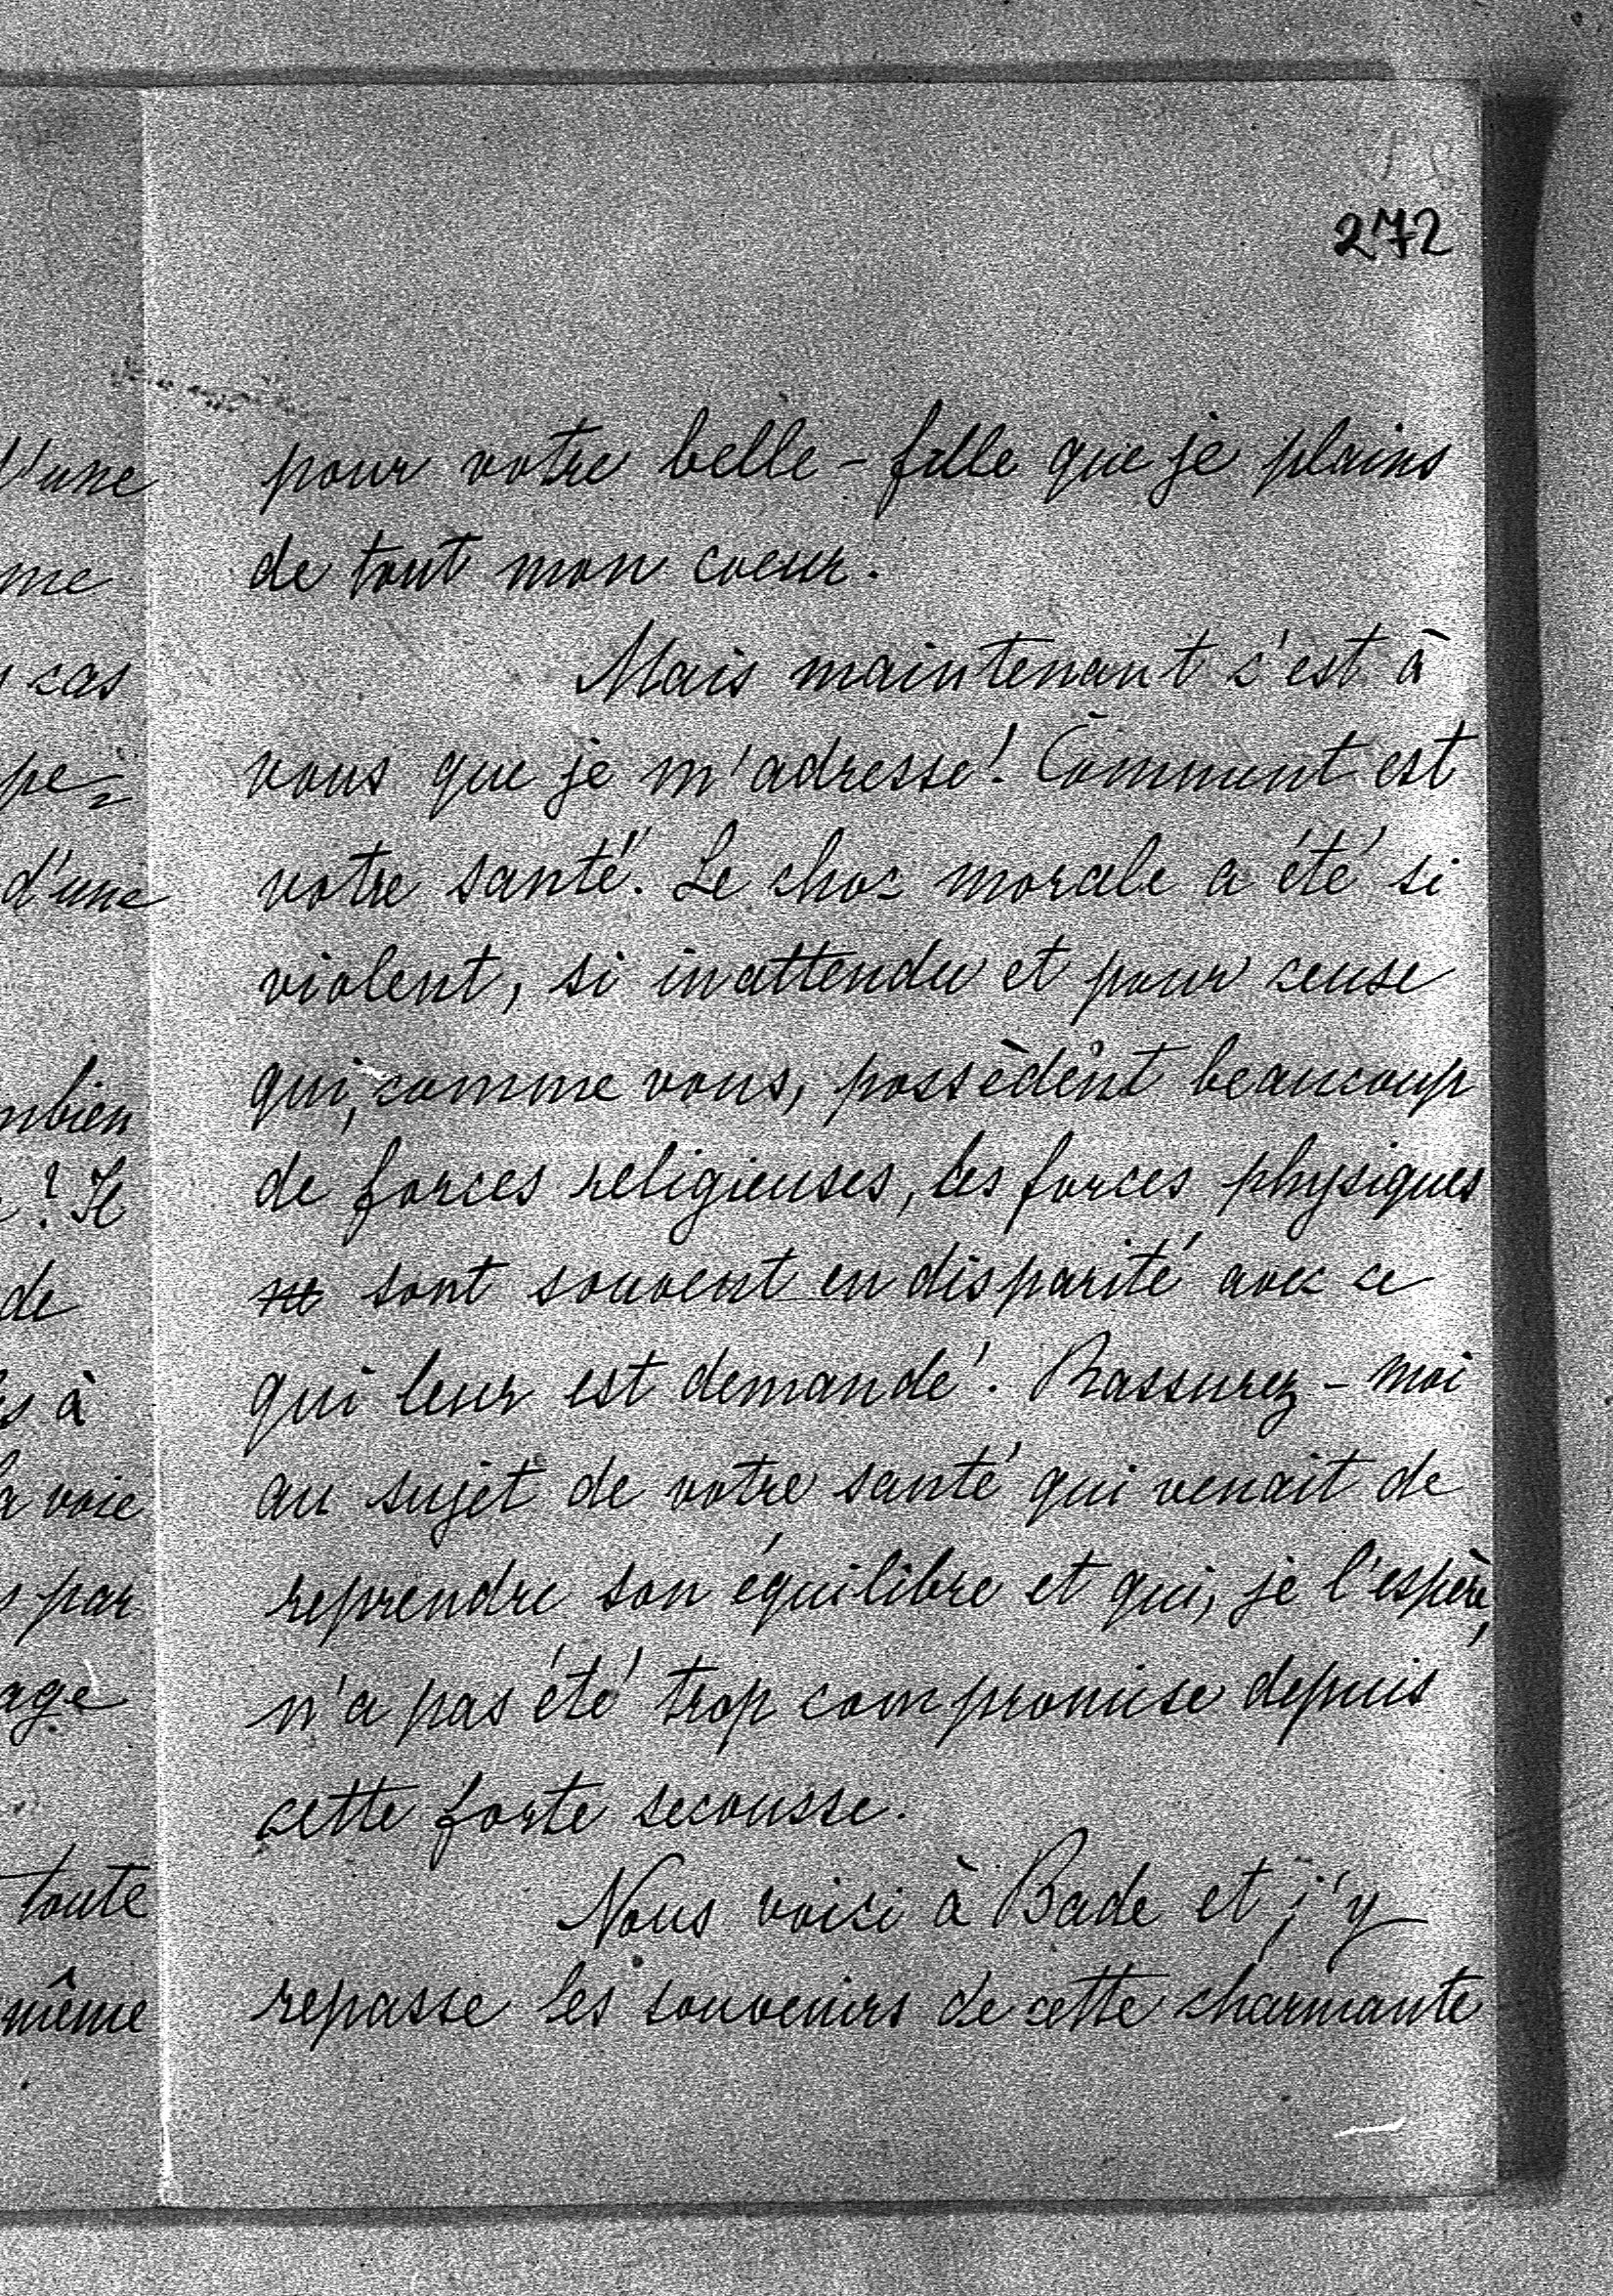 272
pour votre belle-fille que je plains
de tout mon coeur.
Mais maintenant c'est à
vous que je m'adresse! Comment est
votre santé. Le choc morale a été si
violent, si inattendu et pour ceuse
qui, comme vous, possèdent beaucoup
de forces religieuses, les forces physiques
sont souvent en disparité avec ce
qui leur est demandé. Rassurez-moi
au sujet de votre santé qui venait de
reprendre son équilibre et qui, je l'espère,
n'a pas été trop compromise depuis
cette forte secousse.
Nous voici à Bade et j'y
repasse les souvenirs de cette charmante
d'une
me
cas
pe=
d'une
mbien
? Il
de
s à
la voie
par
age
toute
même